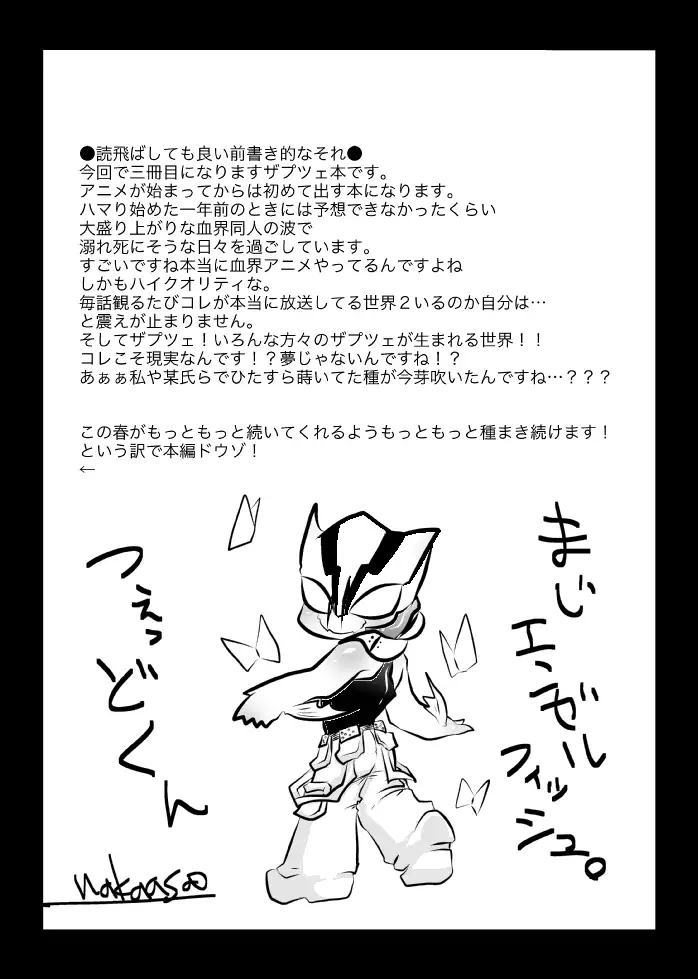 ●読飛ばしても良い前書き的なそれ●
今回で三冊目になりますザプツェ本です。
アニメが始まってからは初めて出す本になります。
ハマり始めた一年前のときには予想できなかったくらい
大盛り上がりな血界同人の波で
溺れ死にそうな日々を過ごしています。
すごいですね本当に血界アニメやってるんですよね
しかもハイクオリティな。
毎話観るたびコレが本当に放送してる世界２いるのか自分は…
と震えが止まりません。
そしてザプツェ！いろんな方々のザプツェが生まれる世界！！
コレこそ現実なんです！？夢じゃないんですね！？
あぁぁ私や某氏らでひたすら蒔いてた種が今芽吹いたんですね…？？？
この春がもっともっと続いてくれるようもっともっと種まき続けます！
という訳で本編ドウゾ！
←
まじ
エンゼル
フィッシュ。
つぇっどくん
nakaasao